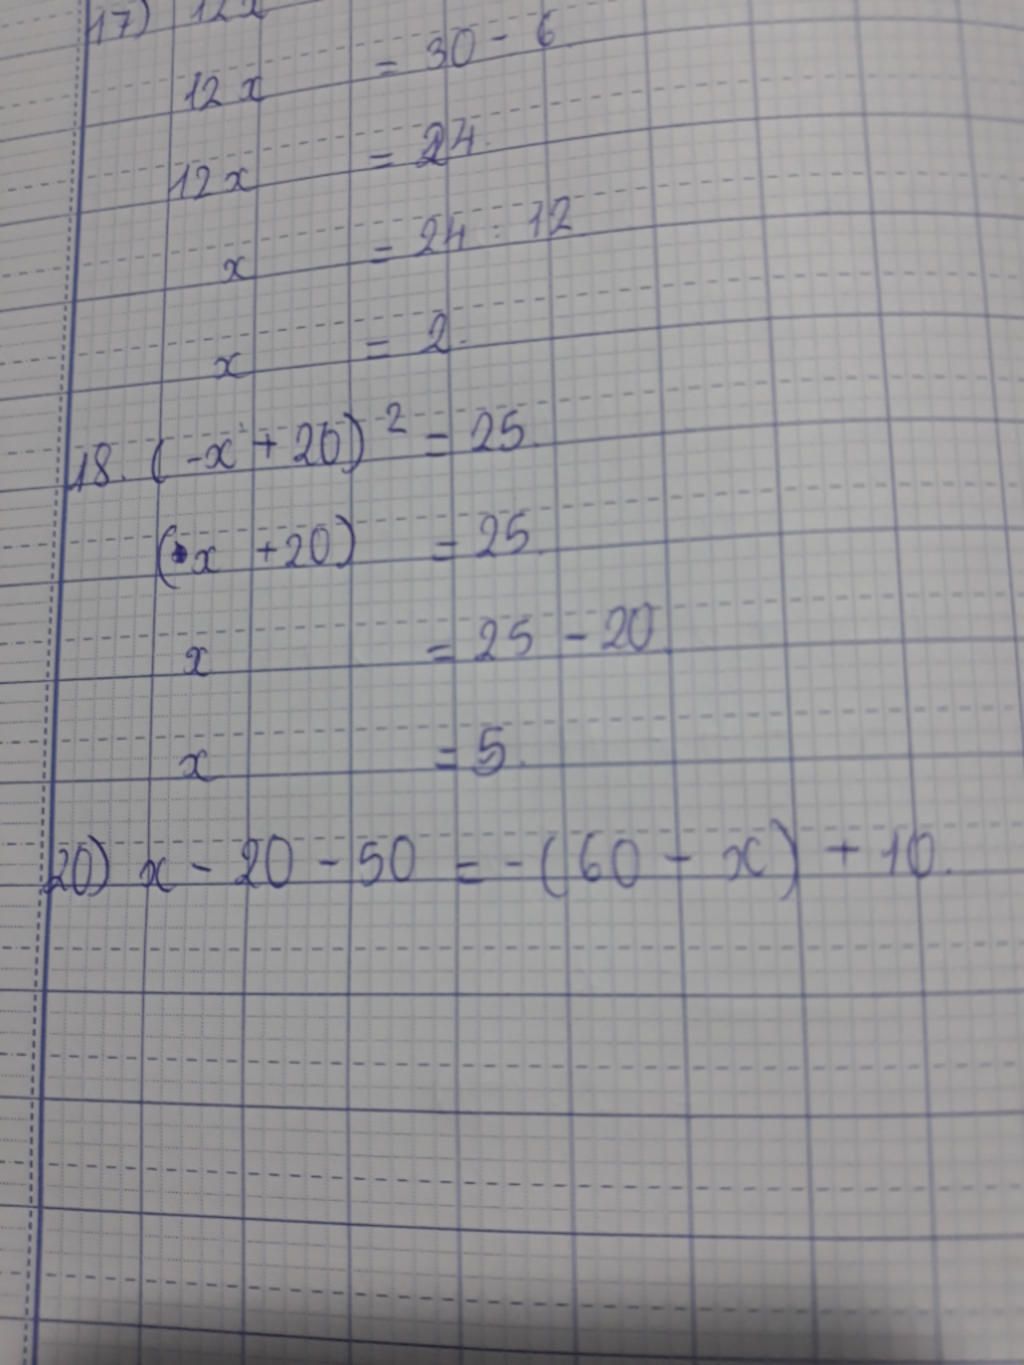 17) 12x
12x = 30 - 6
12x = 24.
x = 24 : 12
x = 2.
18. (-x + 20)² = 25.
(x + 20) = 25.
x = 25 - 20
x = 5.
20) x - 20 - 50 = -(60 - x) + 10.